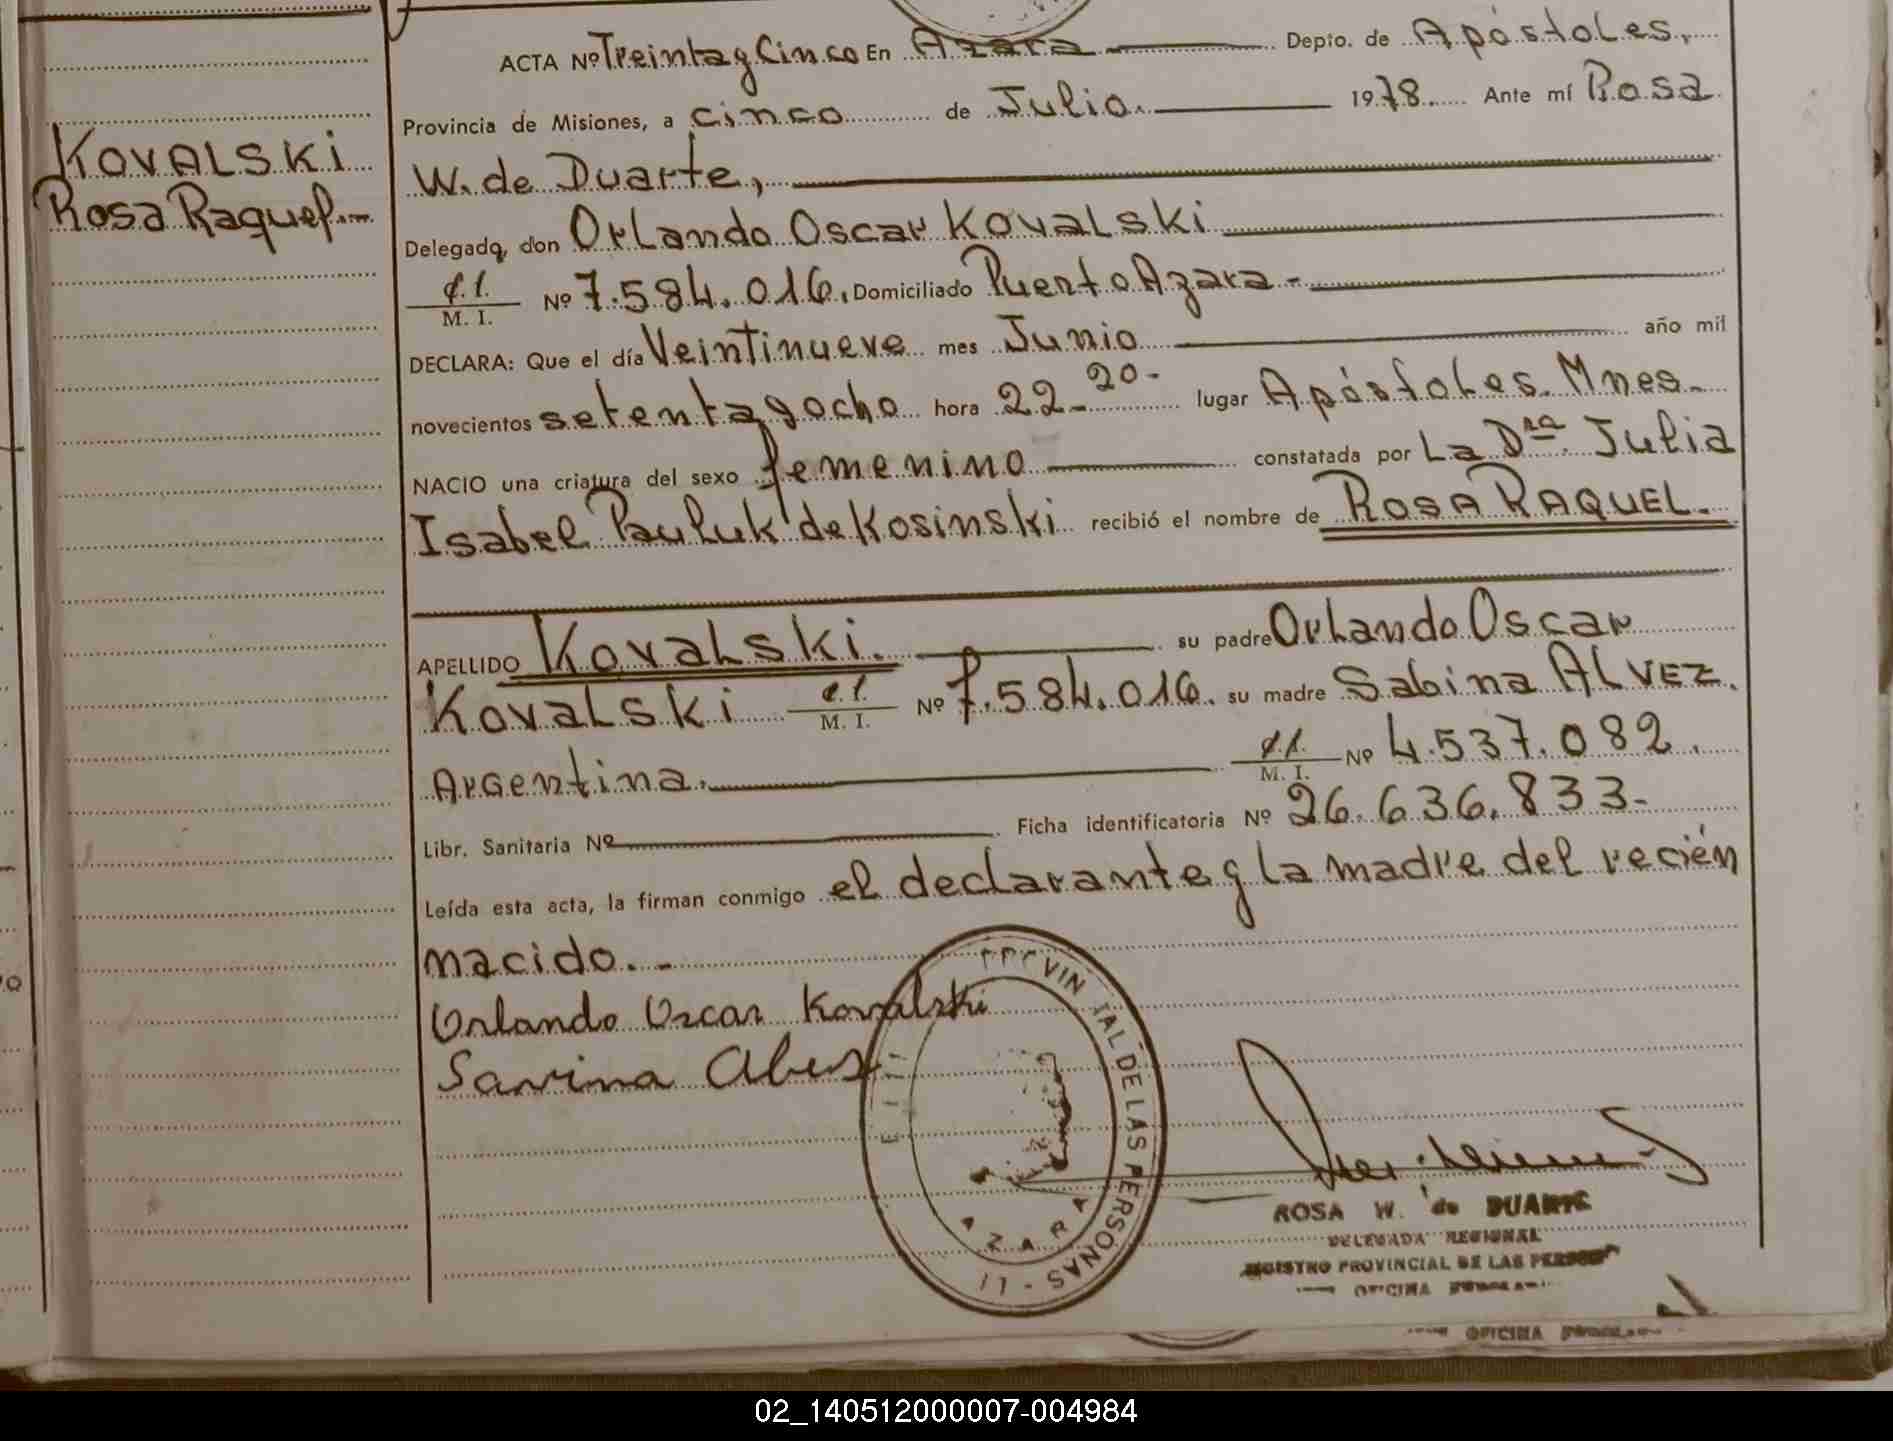 KOVALSKi
Rosa Raquel
ACTA Nº Treinta y Cinco En Azara Depto. de Apóstoles,
Provincia de Misiones, a cinco de Julio. 1978 Ante mí Rosa
W. de Duarte,
Delegada, don Orlando Oscar Kovalski
C.I.
M. I. Nº 7.584.016. Domiciliado Puerto Azara-
DECLARA: Que el día Veintinueve mes Junio año mil
novecientos setenta y ocho hora 22-20- lugar Apóstoles. Mnes.
NACIO una criatura del sexo femenino constatada por La Dra. Julia
Isabel Pauluk de Kosinski recibió el nombre de ROSA RAQUEL.
APELLIDO Kovalski. su padre Orlando Oscar
Kovalski C.I.
M. I. Nº 7.584.016. su madre Sabina ALVEZ.
Argentina. C.I.
M. I. Nº 4.537.082.
Libr. Sanitaria Nº Ficha identificatoria Nº 26.636.833-
Leída esta acta, la firman conmigo el declarante y la madre del recién
nacido.-
Orlando Oscar Kovalski
Savina Alves
DE LAS PERSONAS
AZARA
ROSA W. de DUARTE
DELEGADA REGIONAL
REGISTRO PROVINCIAL DE LAS PERSONAS
OFICINA
OFICINA
02_140512000007-004984